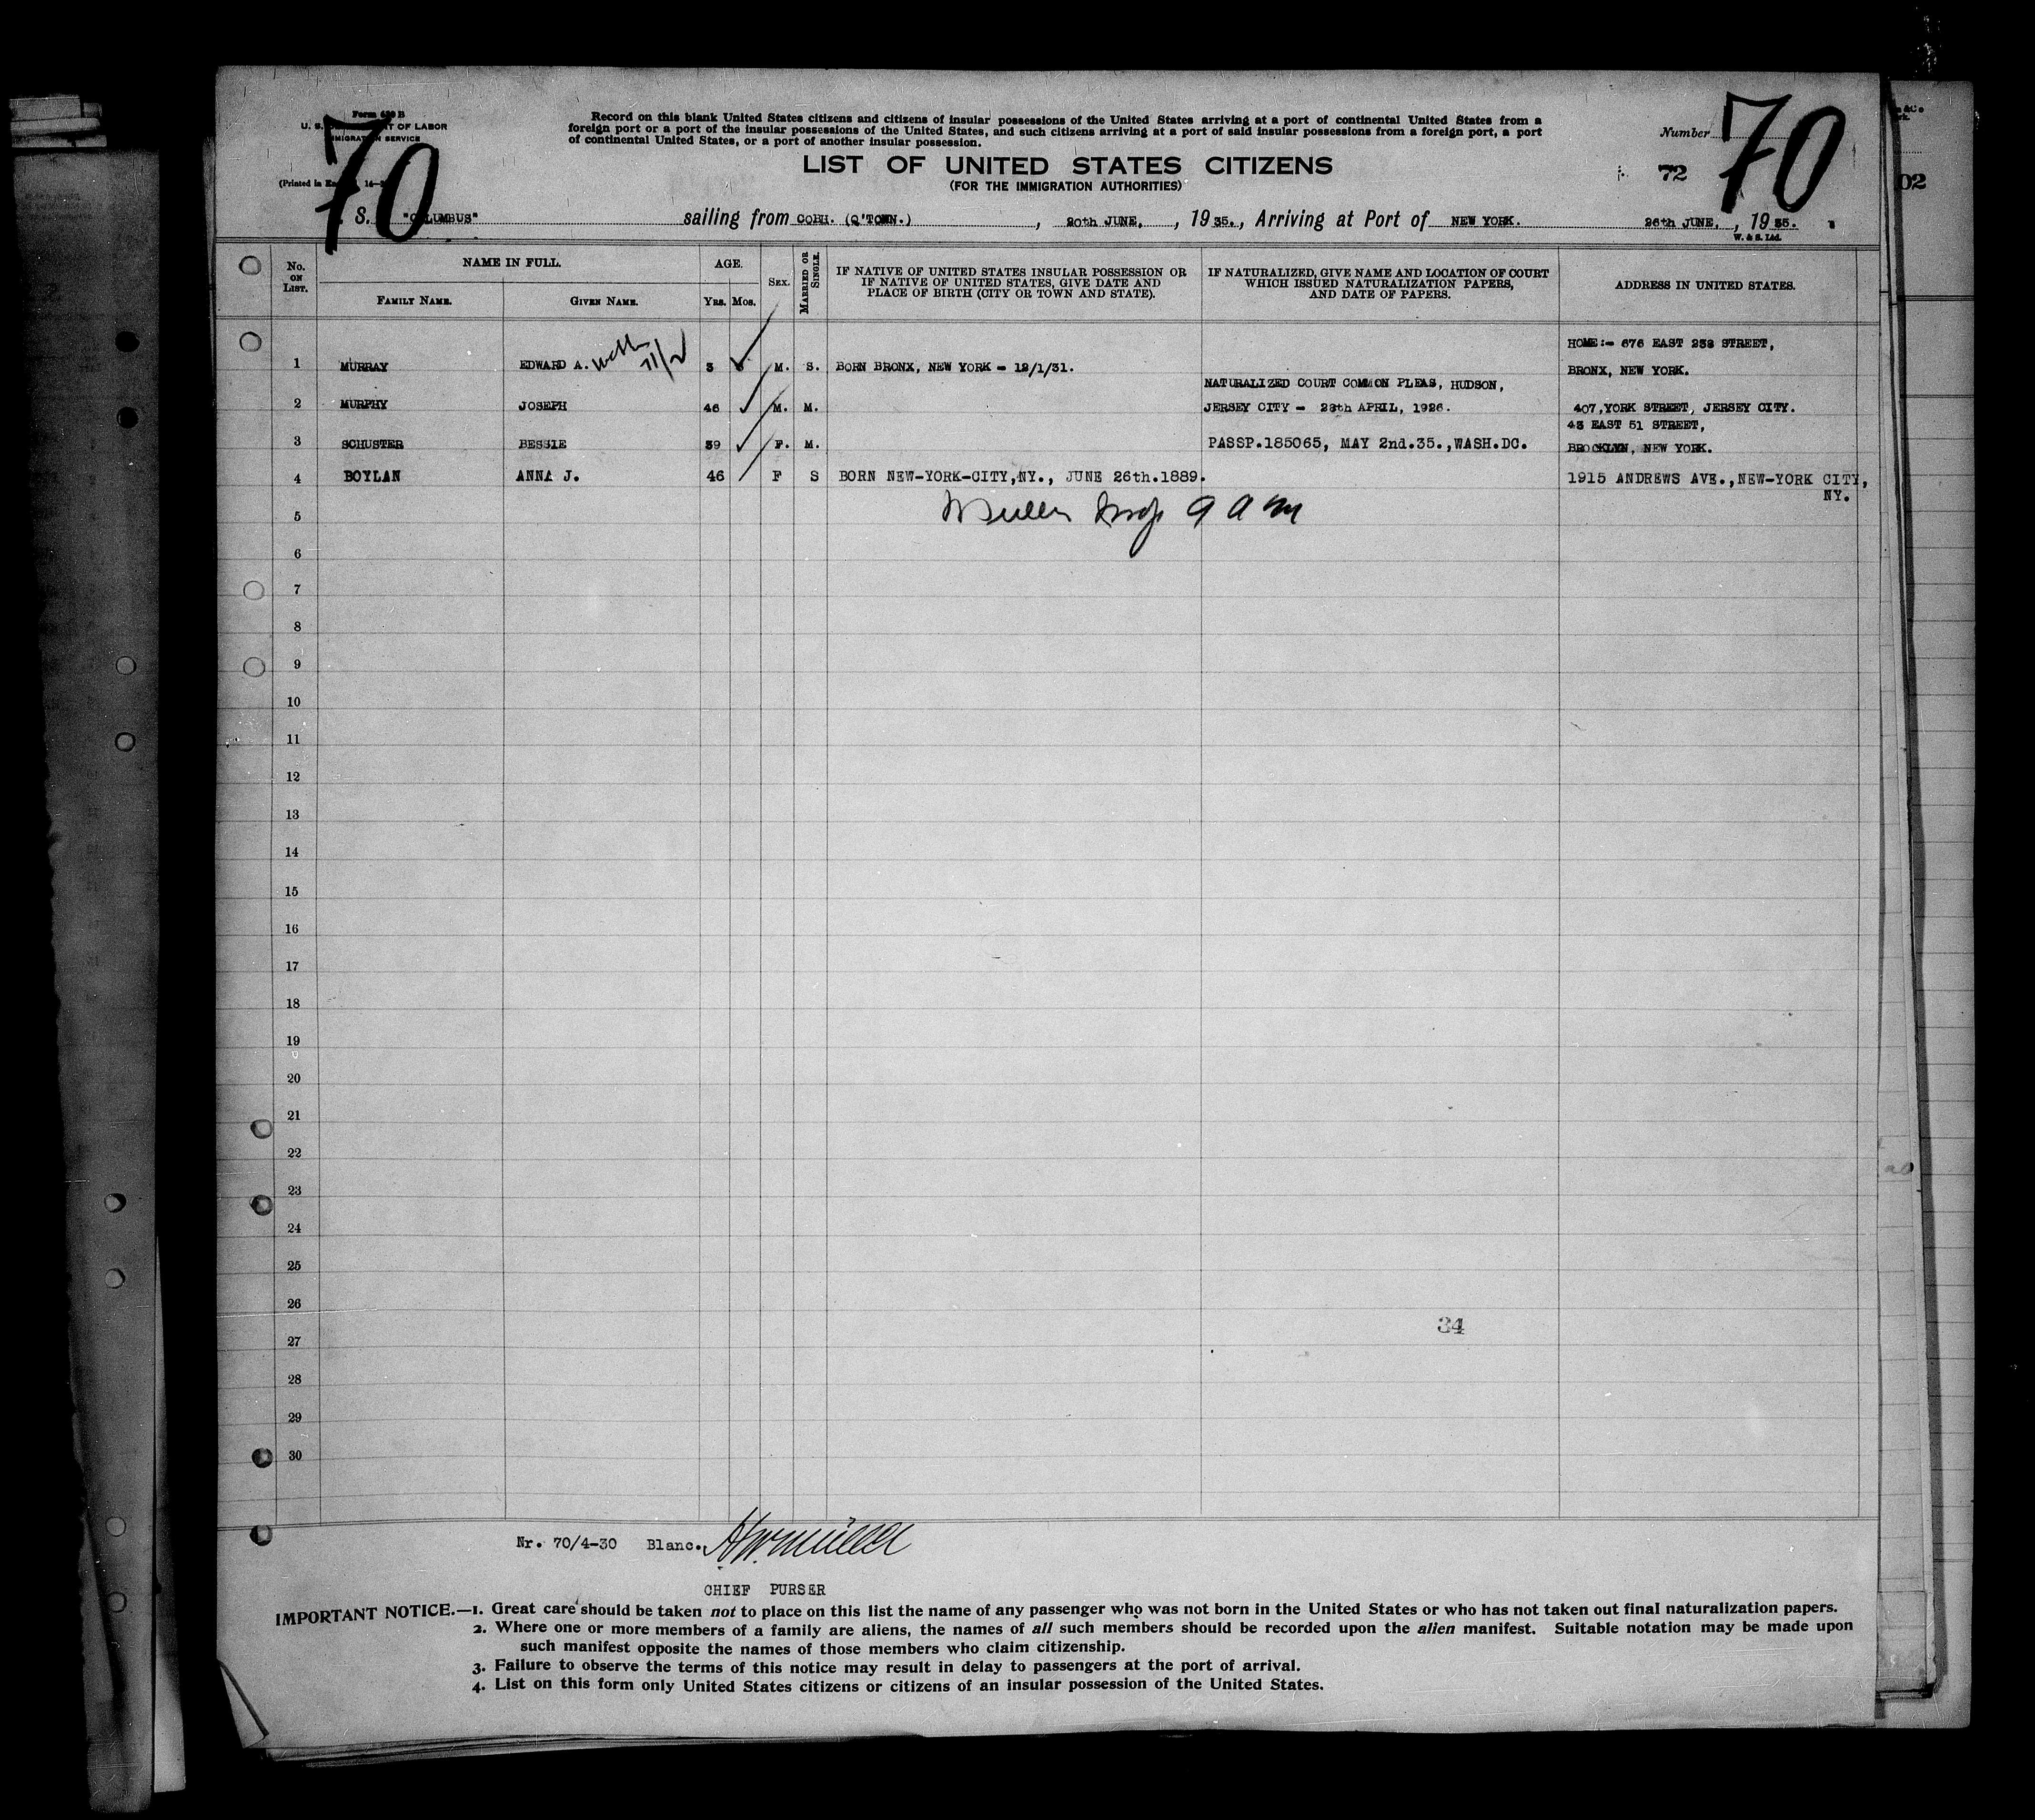 Form 630 B
U. S. DEPARTMENT OF LABOR
IMMIGRATION SERVICE
(Printed in
70
Record on this blank United States citizens and citizens of insular possessions of the United States arriving at a port of continental United States from a
foreign port or a port of the insular possessions of the United States, and such citizens arriving at a port of said insular possessions from a foreign port, a port
of continental United States, or a port of another insular possession.
Number
70
LIST OF UNITED STATES CITIZENS
(FOR THE IMMIGRATION AUTHORITIES)
72
02
S. "COLUMBUS" sailing from COBH. (Q'TOWN.), 20th JUNE, , 1935., Arriving at Port of NEW YORK. 26th JUNE, , 1935.
W. & S. Ltd.
No. ON LIST. NAME IN FULL. AGE. SEX. MARRIED OR SINGLE. IF NATIVE OF UNITED STATES INSULAR POSSESSION OR IF NATIVE OF UNITED STATES, GIVE DATE AND PLACE OF BIRTH (CITY OR TOWN AND STATE). IF NATURALIZED, GIVE NAME AND LOCATION OF COURT WHICH ISSUED NATURALIZATION PAPERS, AND DATE OF PAPERS. ADDRESS IN UNITED STATES.
FAMILY NAME. GIVEN NAME. YRS. MOS.
HOME:- 676 EAST 238 STREET,
1 MURRAY EDWARD A. 3 M. S. BORN BRONX, NEW YORK - 12/1/31. BRONX, NEW YORK.
NATURALIZED COURT COMMON PLEAS, HUDSON,
2 MURPHY JOSEPH 46 M. M. JERSEY CITY - 28th APRIL, 1926. 407,YORK STREET, JERSEY CITY.
43 EAST 51 STREET,
3 SCHUSTER BESSIE 39 F. M. PASSP.185065, MAY 2nd.35.,WASH.DC. BROOKLYN, NEW YORK.
4 BOYLAN ANNA J. 46 F S BORN NEW-YORK-CITY,NY., JUNE 26th.1889. 1915 ANDREWS AVE.,NEW-YORK CITY,
NY.
5
6
7
8
9
10
11
12
13
14
15
16
17
18
19
20
21
22
23
24
25
26
34
27
28
29
30
Nr. 70/4-30 Blanc.
CHIEF PURSER
IMPORTANT NOTICE.—1. Great care should be taken not to place on this list the name of any passenger who was not born in the United States or who has not taken out final naturalization papers.
2. Where one or more members of a family are aliens, the names of all such members should be recorded upon the alien manifest. Suitable notation may be made upon
such manifest opposite the names of those members who claim citizenship.
3. Failure to observe the terms of this notice may result in delay to passengers at the port of arrival.
4. List on this form only United States citizens or citizens of an insular possession of the United States.